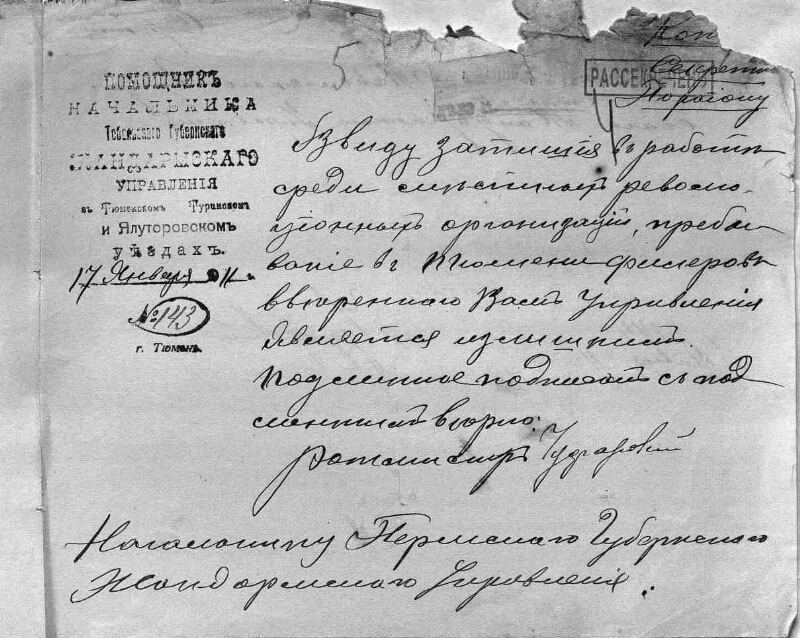 5
Коп
Секретн
РАССЕКРЕЧЕНО
ПОМОЩНИКЪ
НАЧАЛЬНИКА
Тобольскаго Губернскаго
ЖАНДАРМСКАГО
УПРАВЛЕНІЯ
въ Тюменскомъ Туринскомъ
и Ялуторовскомъ
уѣздахъ.
17 Января 911 г.
№ 143
г. Тюмень
Въ виду затишія въ работѣ
среди мѣстныхъ револю-
ціонныхъ организацій, пребы-
ваніе въ Тюмени филеровъ
ввѣреннаго Вамъ Управленія
является излишнимъ.
Подлинное подписалъ съ под
линнымъ вѣрно:
Ротмистръ
Начальнику Пермскаго Губернскаго
Жандармскаго Управленія.